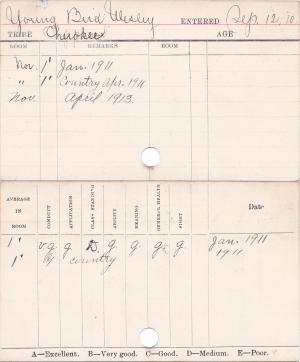 Young Bird Wesley ENTERED Sep. 12, 10
TRIBE Cherokee AGE
ROOM REMARKS ROOM
Nov. 1" Jan. 1911
" 1" Country Apr. 1911
Nov. April 1913.
AVERAGE IN ROOM CONDUCT APPLICATION CLASS STANDING ABILITY READING GENERAL HEALTH SIGHT Date
1" v.g g D. g. g. g. g. Jan. 1911
1" country 1911
A—Excellent. B—Very good. C—Good. D—Medium. E—Poor.